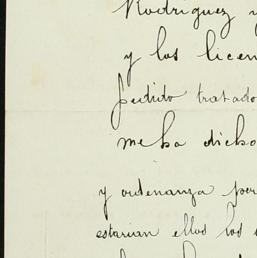 Rodriguez y
y los licen
pedido tratado
me ha dicho
y ordenanza per
estarian ellos los